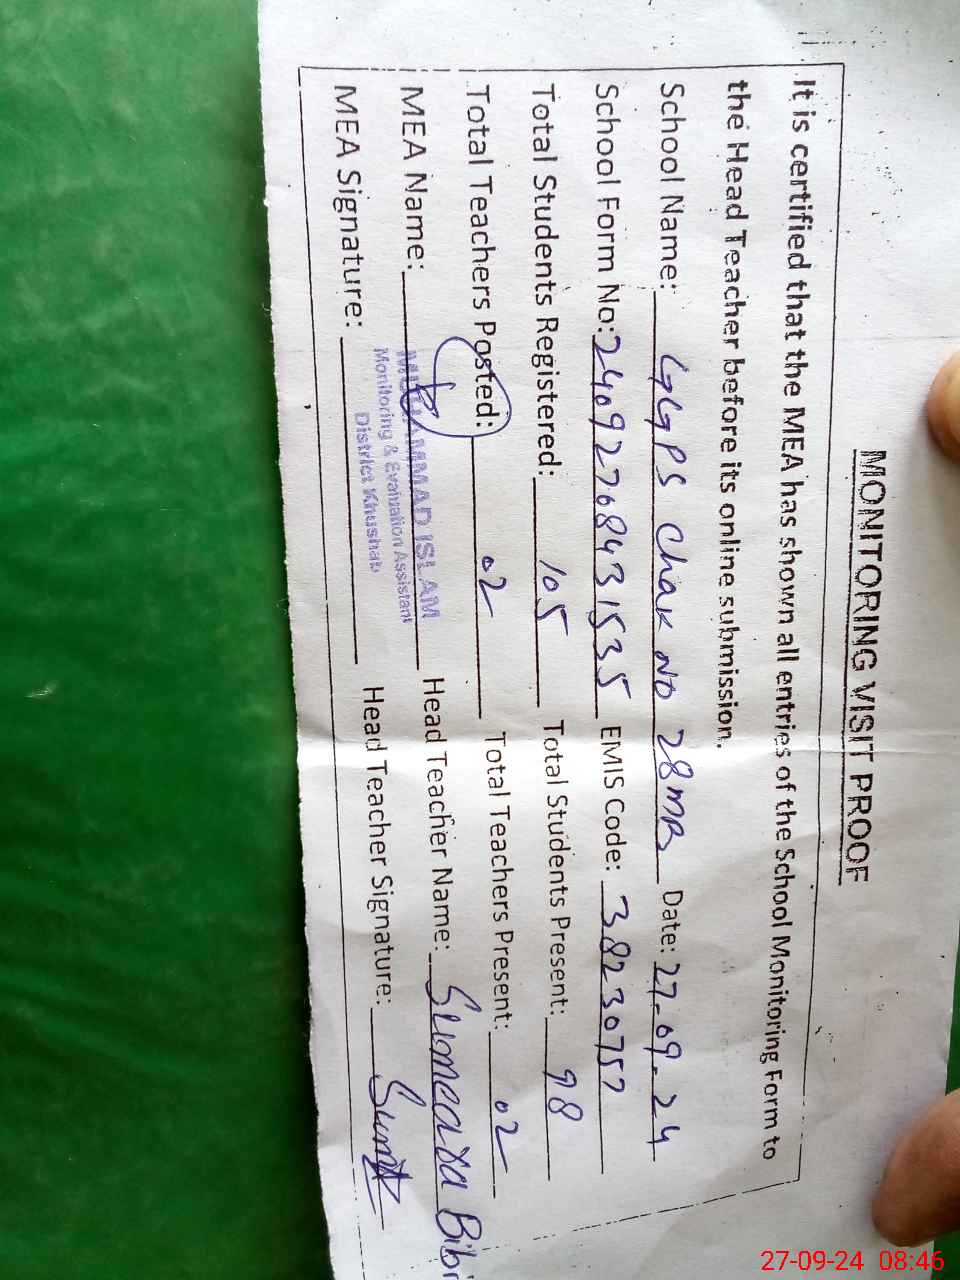 MONITORING VISIT PROOF
It is certified that the MEA has shown all entries of the School Monitoring Form to
the Head Teacher before its online submission.
School Name: GGPS Chak NO 28MB Date: 27-09-24
School Form No: 24092768431535 EMIS Code: 38230757
Total Students Registered: 105 Total Students Present: 98
Total Teachers Posted: 02 Total Teachers Present: 02
MEA Name: MUHAMMAD ISLAM Head Teacher Name: Sumeara Bibi
Monitoring & Evaluation Assistant
District Khushab
MEA Signature: Head Teacher Signature:
27-09-24 08:46